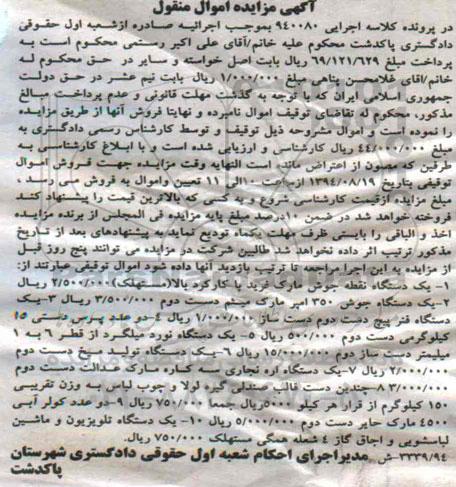 آگهی مزایده اموال منقول
در پرونده کلاسه اجرایی ۹۴۰۰۸۰ بموجب اجرائیه صادره ازشعبه اول حقوقی
دادگستری پاکدشت محکوم علیه خانم/آقای علی اکبر رستمی محکوم است به
پرداخت مبلغ ۶۹/۱۲۱/۶۲۹ ریال بابت اصل خواسته و سایر در حق محکوم له
خانم/آقای غلامحسن پناهی مبلغ ۱/۰۰۰/۰۰۰ ریال بابت نیم عشر در حق دولت
جمهوری اسلامی ایران که با توجه به گذشت مهلت قانونی و عدم پرداخت مبالغ
مذکور، محکوم له تقاضای توقیف اموال نامبرده و نهایتا فروش آنها از طریق مزایده
را نموده است و اموال مشروحه ذیل توقیف و توسط کارشناس رسمی دادگستری به
مبلغ ۴۴/۰۰۰/۰۰۰ ریال کارشناسی و ارزیابی شده است و با ابلاغ کارشناسی به
طرفین که مصون از اعتراض مانده است النهایه وقت مزایده جهت فروش اموال
توقیفی بتاریخ ۱۳۹۴/۰۸/۱۹ ازساعت ۱۰الی ۱۱ تعیین واموال به فروش می رسد.
مبلغ مزایده ازقیمت کارشناسی شروع و به کسی که بالاترین قیمت را پیشنهاد کند
فروخته خواهد شد در ضمن ۱۰درصد مبلغ پایه مزایده فی المجلس از برنده مزایده
اخذ و الباقی را بایستی ظرف مهلت یکماه تودیع نماید به پیشنهادهای بعد از تاریخ
مذکور ترتیب اثر داده نخواهد شد طالبین شرکت در مزایده می توانند پنج روز قبل
از مزایده به این اجرا مراجعه تا ترتیب بازدید آنها داده شود اموال توقیفی عبارتند از:
۱- یک دستگاه نقطه جوش مارک فرید با کارکرد بالا(مستهلک) ۲/۵۰۰/۰۰۰ ریال
۲-یک دستگاه جوش ۳۵۰ امپر مارک میثم دست دوم ۳/۵۰۰/۰۰۰ ریال ۳-یک
دستگاه فنر پیچ دست دوم دست ساز ۱/۰۰۰/۰۰۰ ریال ۴-دو عدد پرس دستی ۱۵
کیلوگرمی دست دوم ۵۰۰/۰۰۰ ریال ۵- یک دستگاه نورد میلگرد از قطر ۶ به ۱
میلیمتر دست ساز دوم ۱۵/۰۰۰/۰۰۰ ریال ۶-یک دستگاه تولید میخ دست دوم
۲/۰۰۰/۰۰۰ ریال ۷-یک دستگاه اره نجاری سه کاره مارک عدالت دست دوم
۳/۰۰۰/۰۰۰ ۸-چندین دست قالب صندلی گیره لولا و چوب لباس به وزن تقریبی
۱۵۰ کیلوگرم از قرار هر کیلو ۵۰۰۰ریال جمعا ۷۵۰/۰۰۰ ریال ۹-دو عدد کولر آبی
۴۵۰۰ مارک حایر دست دوم ۵/۰۰۰/۰۰۰ ریال ۱۰- یک دستگاه تلویزیون و ماشین
لباسشویی و اجاق گاز ۴ شعله همگی مستهلک ۷۵۰/۰۰۰ ریال.
۳۳۳۹/۹۴-ش مدیراجرای احکام شعبه اول حقوقی دادگستری شهرستان
پاکدشت